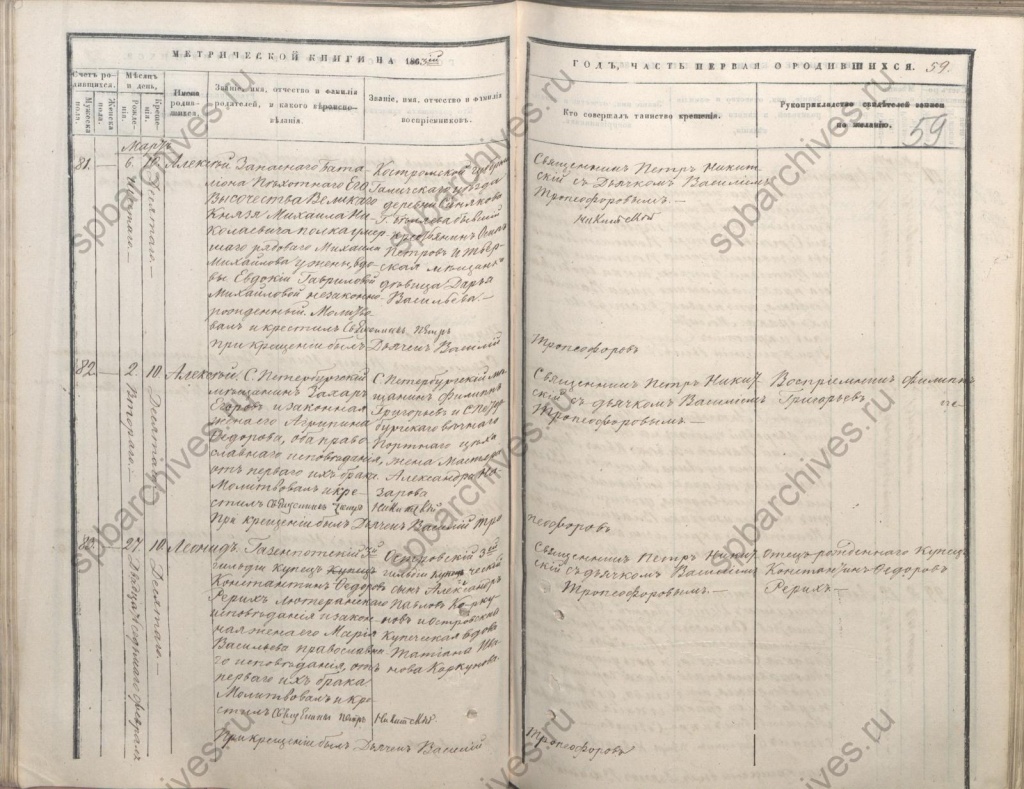 МЕТРИЧЕСКОЙ КНИГИ НА 186
ГОДЪ, ЧАСТЬ ПЕРВАЯ О РОДИВШИХСЯ. 59.
59
Счетъ родившихся.
Мужеска пола.
Женска пола.
Мѣсяцъ и день.
Рожденія.
Крещенія.
Имена родившихся.
Званіе, имя, отчество и фамилія
родителей, и какого вѣроисповѣданія.
Званіе, имя, отчество и фамилія
воспріемниковъ.
Кто совершалъ таинство крещенія.
Рукоприкладство свидѣтелей записи
по желанію.
Мартъ
81. — 6. 10. Алексѣй
Шестаго. —
Десятаго. —
Запаснаго бата
ліона Пѣхотнаго Его
Высочества Великаго
Князя Михаила Ни
колаевича полка умер
шаго рядоваго Михаила
Михайлова у жены, вдо
вы Евдокіи Гавриловой
Михайловой незаконно
рожденный. Молитво
валъ и крестилъ Священникъ Петръ
При крещеніи былъ Дьячекъ Василій
Костромской губерніи
Галичскаго уѣзда
деревни
бывшій
крестьянинъ
Петровъ и Твер
ская мѣщанка
дѣвица Дарья
Васильева. —
Священникъ Петръ Никит
скій съ Дьячкомъ Василіемъ
Тропеофоровымъ. —
Никитскій
Тропеофоровъ
82. — 2. 10. Алексѣй.
Втораго. —
Десятаго. —
С. Петербургскій
мѣщанинъ Захаръ
Егоровъ и законная
жена его Агрипина
Ѳедорова, оба право
славнаго исповѣданія,
отъ перваго ихъ брака.
Молитвовалъ и кре
стилъ Священникъ Петръ
При крещеніи былъ Дьячекъ Василій Тро
С. Петербургскій мѣ
щанинъ Филиппъ
Григорьевъ и С. Пете
бургскаго вѣчнаго
Портнаго цеха
жена Мастера
Александра На
зарова
Никитскій
Священникъ Петръ Никит
скій съ дьячкомъ Василіемъ
Тропеофоровымъ —
Воспріемникъ Филиппъ
Григорьевъ
пеофоровъ
83. 27. 10. Леонидъ.
Двадцать седьмаго февраля
Десятаго. —
Газенпотскій 3й
гильдіи Купецъ
Константинъ Ѳедоровъ
Рерихъ Лютеранскаго
исповѣданія и закон
ная жена его Марія
Васильева православна
го исповѣданія, отъ
перваго ихъ брака
Молитвовалъ и кре
стилъ Священникъ Петръ
При крещеніи былъ Дьячекъ Василій
Островскій 3й
гильдіи купеческій
сынъ Александръ
Павловъ Корку
новъ и Островская
Купеческая вдова
Татіана Ива
нова Коркунова.
Никитскій.
Священникъ Петръ Никит
скій съ дьячкомъ Василіемъ
Тропеофоровымъ. —
Отецъ рожденнаго Купецъ
Константинъ Ѳедоровъ
Рерихъ. —
Тропеофоровъ
spbarchives.ru